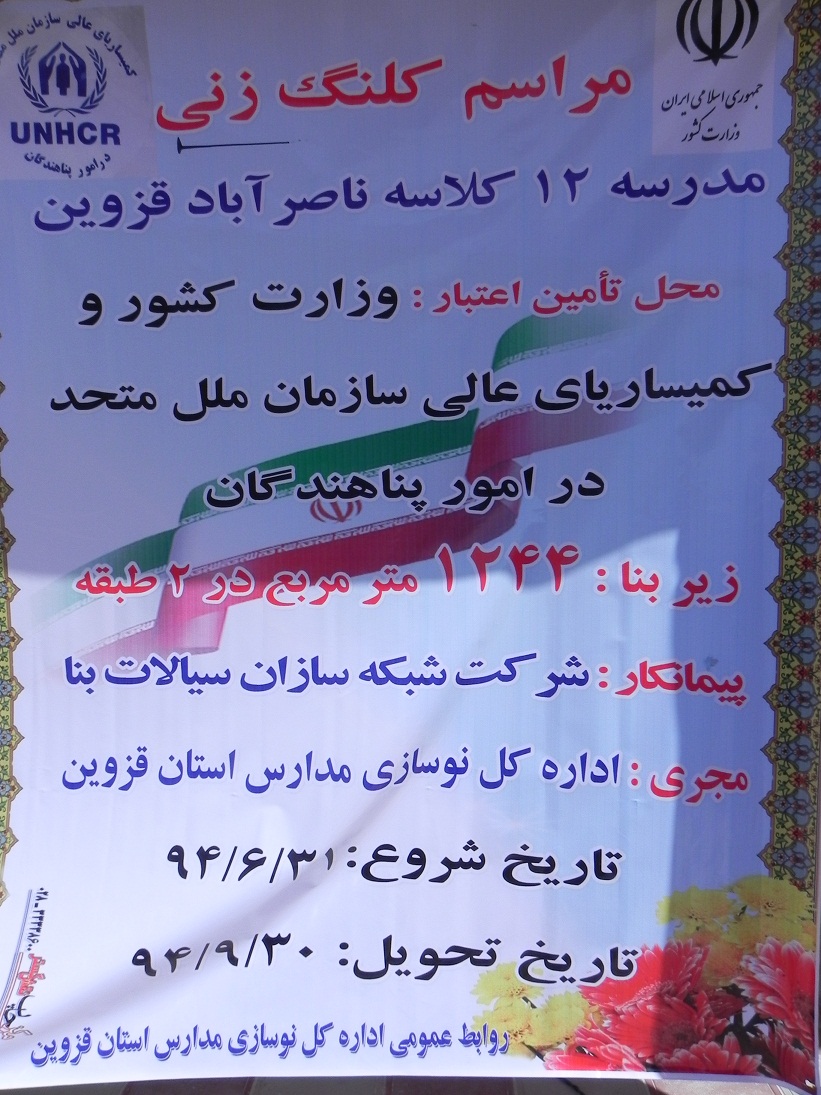 کمیساریای عالی سازمان ملل
UNHCR
در امور پناهندگان
جمهوری اسلامی ایران
وزارت کشور
مراسم کلنگ زنی
مدرسه ۱۲ کلاسه ناصرآباد قزوین
محل تأمین اعتبار : وزارت کشور و
کمیساریای عالی سازمان ملل متحد
در امور پناهندگان
زیر بنا : ۱۲۴۴ متر مربع در ۲ طبقه
پیمانکار : شرکت شبکه سازان سیالات بنا
مجری : اداره کل نوسازی مدارس استان قزوین
تاریخ شروع: ۹۴/۶/۳۱
تاریخ تحویل: ۹۴/۹/۳۰
روابط عمومی اداره کل نوسازی مدارس استان قزوین